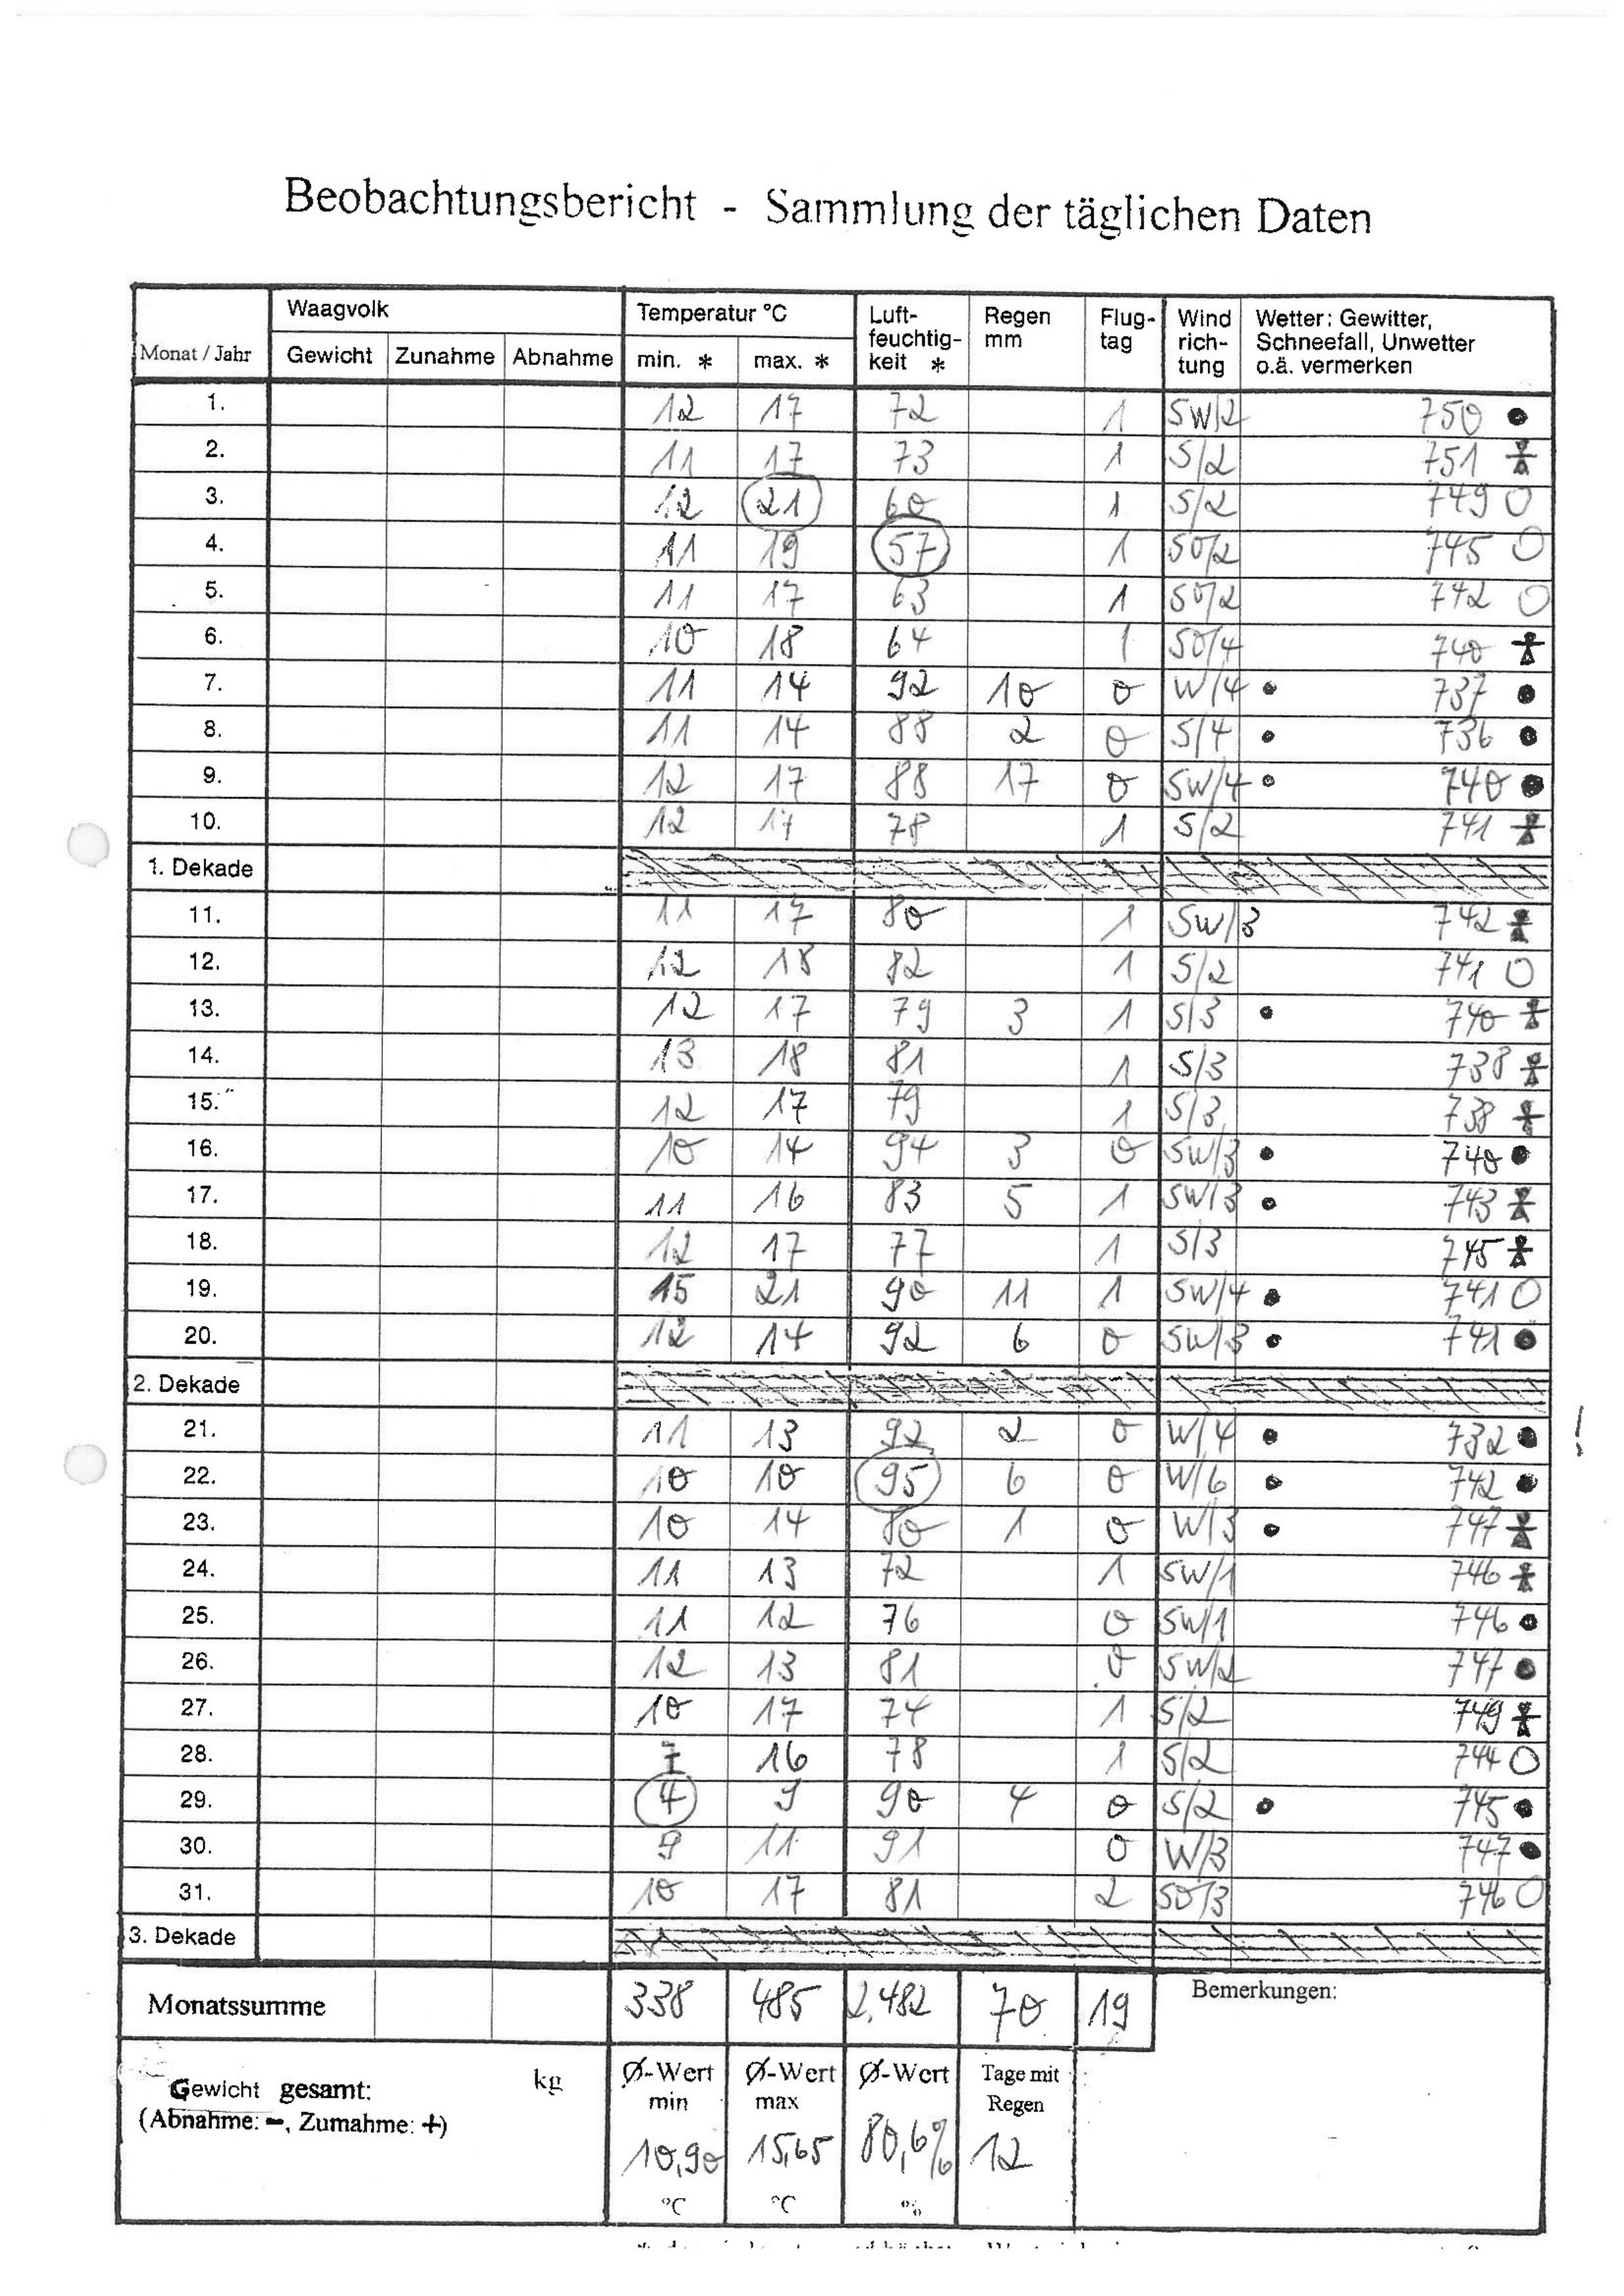 Beobachtungsbericht - Sammlung der täglichen Daten
Monat / Jahr Waagvolk Temperatur °C Luft-feuchtig-keit * Regen mm Flug-tag Wind rich-tung Wetter: Gewitter, Schneefall, Unwetter o.ä. vermerken
Gewicht Zunahme Abnahme min. * max. *
1. 12 17 72 1 SW/2 750
2. 11 17 73 1 S/2 751
3. 12 21 60 1 S/2 749
4. 11 19 57 1 SO/2 745
5. 11 17 63 1 SO/2 742
6. 10 18 64 1 SO/4 740
7. 11 14 92 10 0 W/4 737
8. 11 14 88 2 0 S/4 736
9. 12 17 88 17 0 SW/4 740
10. 12 17 78 1 S/2 741
1. Dekade
11. 11 17 80 1 SW/3 742
12. 12 18 82 1 S/2 741
13. 12 17 79 3 1 S/3 740
14. 13 18 81 1 S/3 738
15. 12 17 79 1 S/3 738
16. 10 14 94 3 0 SW/3 740
17. 11 16 83 5 1 SW/3 743
18. 12 17 77 1 S/3 745
19. 15 21 90 11 1 SW/4 741
20. 12 14 92 6 0 SW/3 741
2. Dekade
21. 11 13 92 2 0 W/4 732 !
22. 10 10 95 6 0 W/6 742
23. 10 14 80 1 0 W/3 747
24. 11 13 72 1 SW/1 746
25. 11 12 76 0 SW/1 746
26. 12 13 81 0 SW/2 747
27. 10 17 74 1 S/2 749
28. 7 16 78 1 S/2 744
29. 4 9 90 4 0 S/2 745
30. 9 11 91 0 W/3 747
31. 10 17 81 2 SO/3 746
3. Dekade
Monatssumme 338 485 2.482 70 19 Bemerkungen:
Gewicht gesamt: kg Ø-Wert min Ø-Wert max Ø-Wert Tage mit Regen
(Abnahme: -, Zumahme: +)
10,90 15,65 80,6% 12
°C °C %